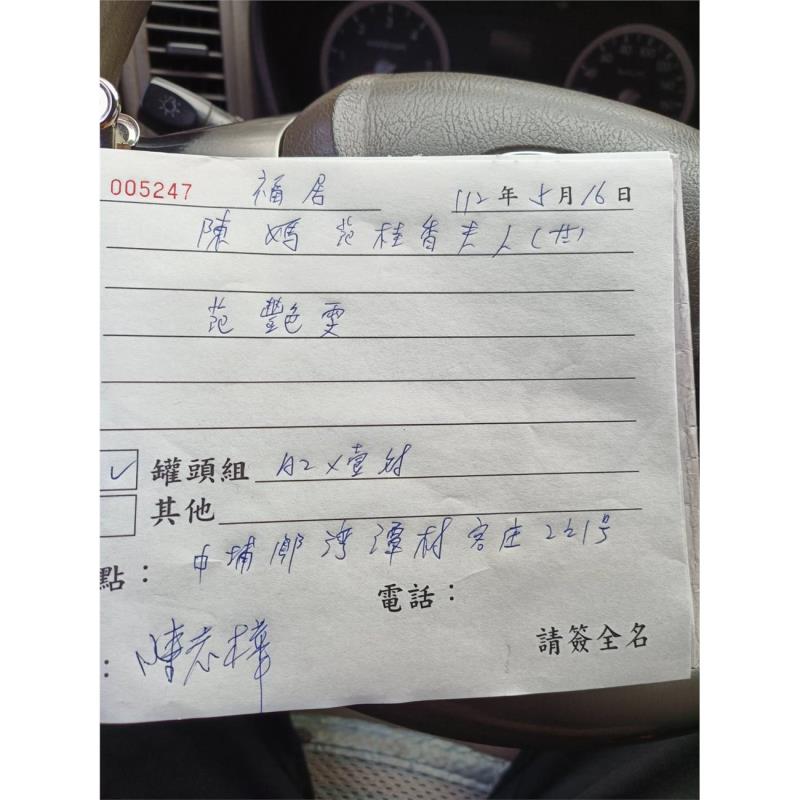 005247 福居 112年5月16日
陳媽范桂香夫人(廿)
范艷雯
✓ 罐頭組 A2×壹对
其他
點： 中埔鄉灣潭村客庄221号
電話：
請簽全名
： 陳志樺